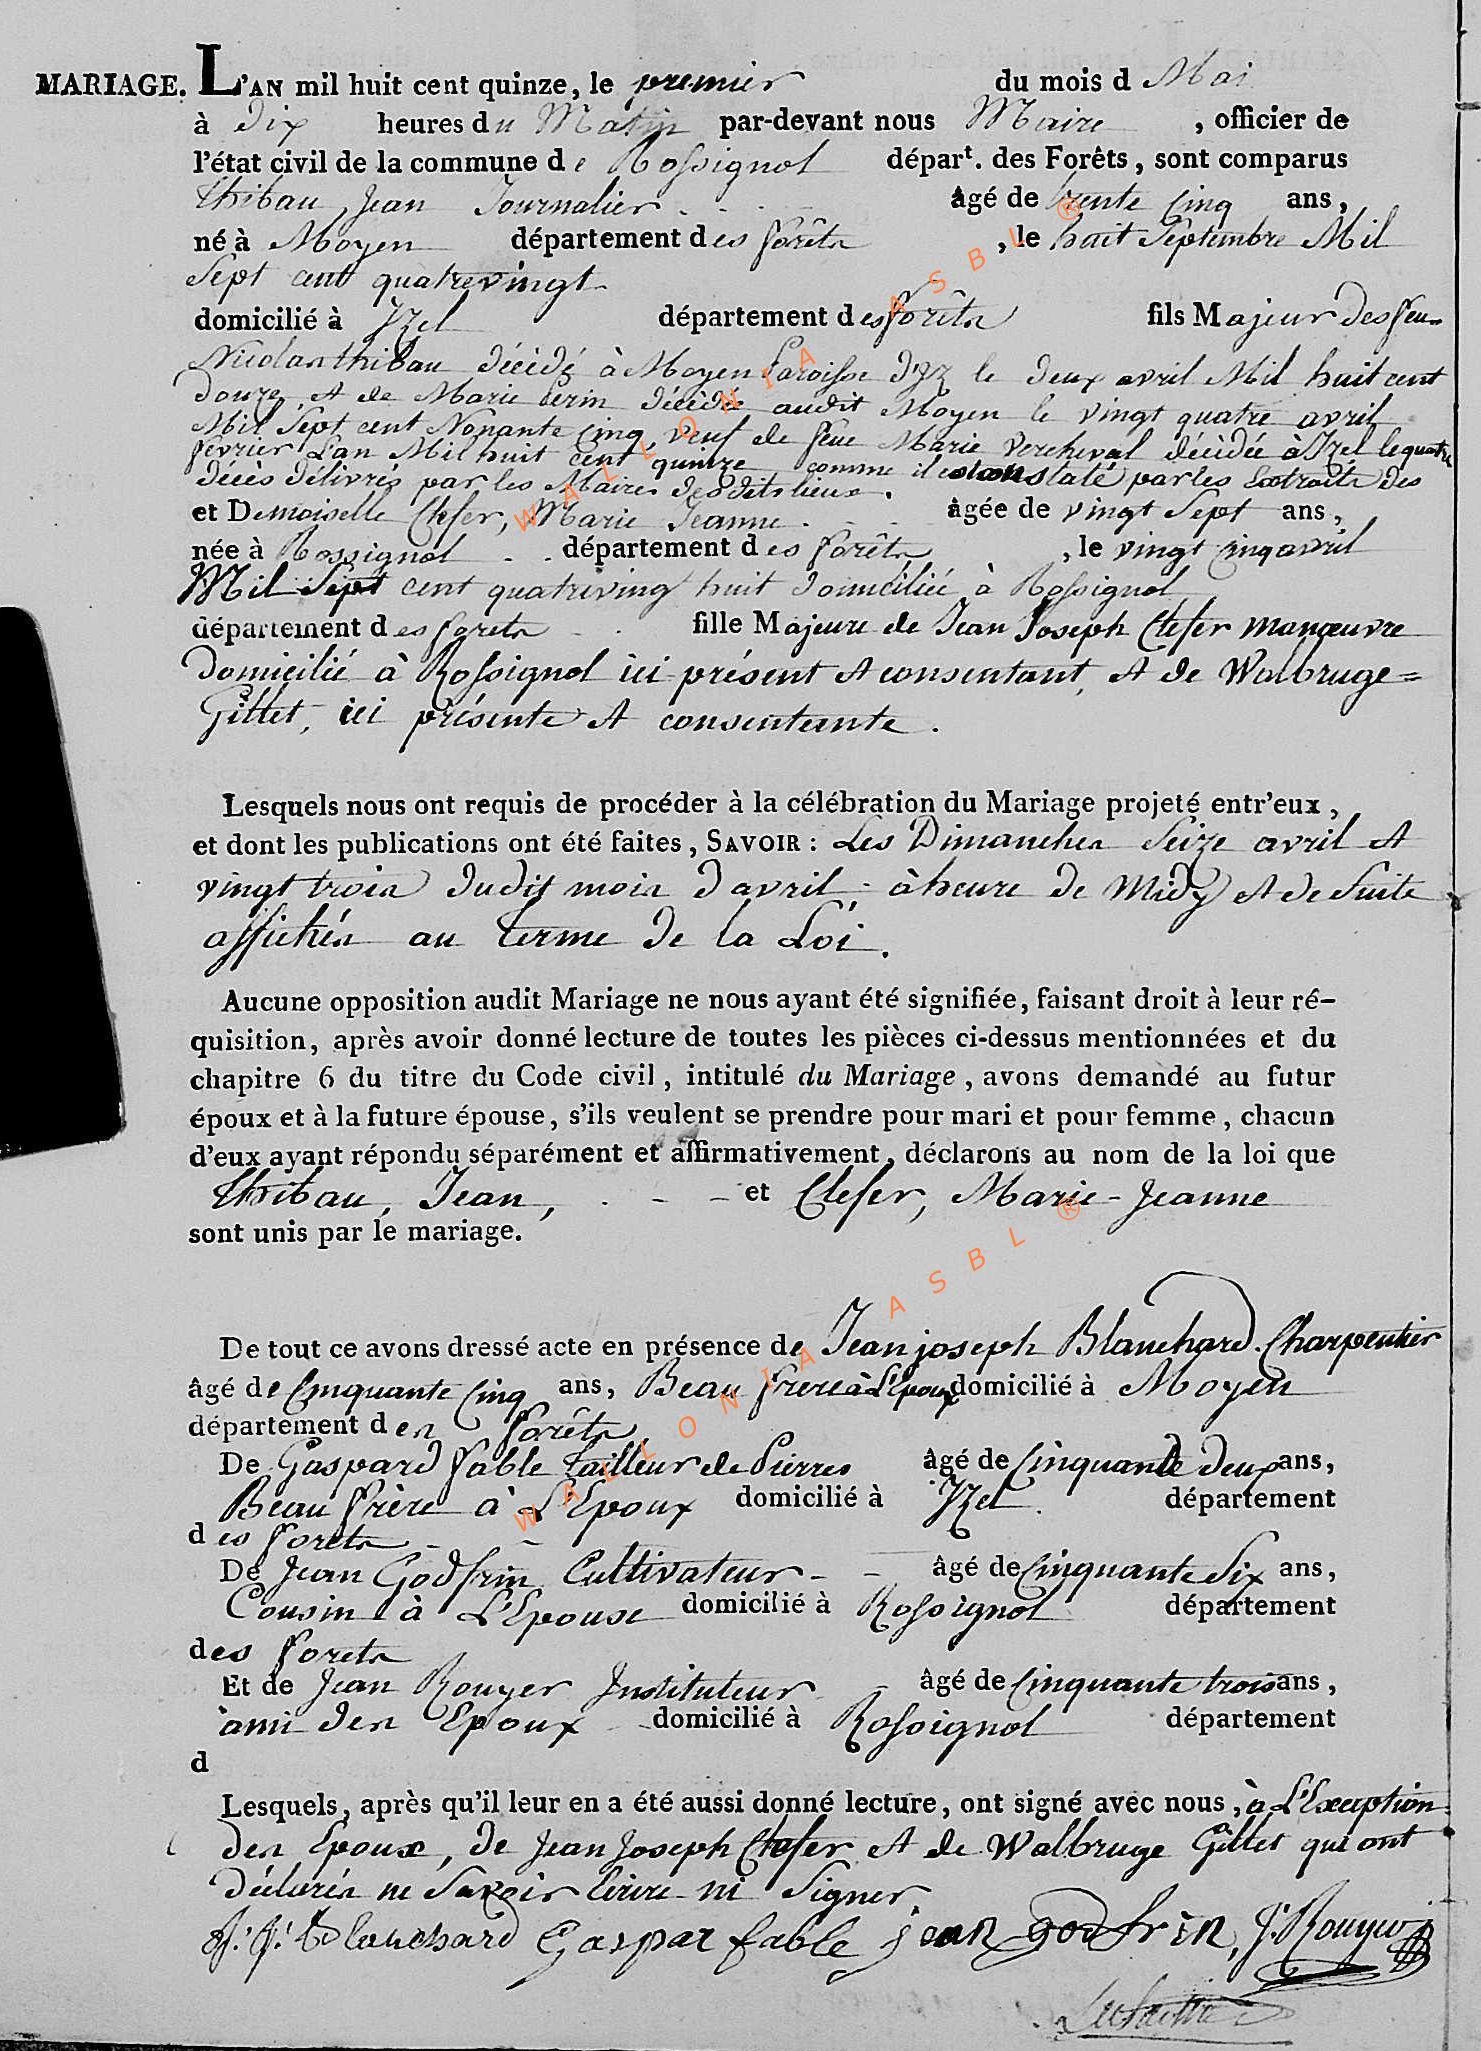 MARIAGE. L'AN mil huit cent quinze, le premier du mois d Mai
à dix heures du Matin par-devant nous Maire , officier de
l'état civil de la commune de Rossignol départ. des Forêts, sont comparus
thibau, Jean Journalier âgé de trente Cinq ans,
né à Moyen département des forêts , le huit Septembre Mil
Sept cent quatrevingt
domicilié à Izel département des forêts fils Majeur des feu
Nicolas thibau décédé à Moyen Paroisse d'Iz le deux avril Mil huit cent
douze, et de Marie décédée audit Moyen le vingt quatre avril
Mil Sept cent Nonante Cinq, veuf de feue Marie Vercheval décédée à Izel le quatre
février L'an Mil huit cent quinze comme il est constaté par les Extraits des
décès délivrés par les Maires desdits lieux.
et Demoiselle Clefer, Marie Jeanne âgée de vingt Sept ans,
née à Rossignol département des forêts , le vingt cinq avril
Mil Sept cent quatreving huit domiciliée à Rossignol
département des forets fille Majeure de Jean Joseph Clefer manœuvre
domicilié à Rossignol ici présent et consentant, et de Walbruge=
Gillet, ici présente et consentante.
Lesquels nous ont requis de procéder à la célébration du Mariage projeté entr'eux,
et dont les publications ont été faites, SAVOIR : Les Dimanches Seize avril et
vingt trois dudit mois d'avril à heure de Midy et de Suite
affichés au terme de la Loi.
Aucune opposition audit Mariage ne nous ayant été signifiée, faisant droit à leur ré-
quisition, après avoir donné lecture de toutes les pièces ci-dessus mentionnées et du
chapitre 6 du titre du Code civil, intitulé du Mariage, avons demandé au futur
époux et à la future épouse, s'ils veulent se prendre pour mari et pour femme, chacun
d'eux ayant répondu séparément et affirmativement, déclarons au nom de la loi que
thibau, Jean, et Clefer, Marie-Jeanne
sont unis par le mariage.
De tout ce avons dressé acte en présence de Jean joseph Blanchard Charpentier
âgé de Cinquante Cinq ans, Beau frere à L'Epoux domicilié à Moyen
département des forêts
De Gaspard fable tailleur de Pierres âgé de Cinquante deux ans,
Beau frère à L'Epoux domicilié à Izel département
des forets
De Jean Godfrin Cultivateur âgé de Cinquante Six ans,
Cousin à L'Epouse domicilié à Rossignol département
des forets
Et de Jean Rouyer Instituteur âgé de Cinquante trois ans,
ami des Epoux domicilié à Rossignol département
d
Lesquels, après qu'il leur en a été aussi donné lecture, ont signé avec nous, à L'Exception
des Epoux, de Jean Joseph Clefer et de Walbruge Gillet qui ont
déclarés ne Savoir Ecrire ni Signer
J: J: Blanchard Gaspar fable jean godfrin, J: Rouyer
WALLONIA ASBL ®
WALLONIA ASBL ®